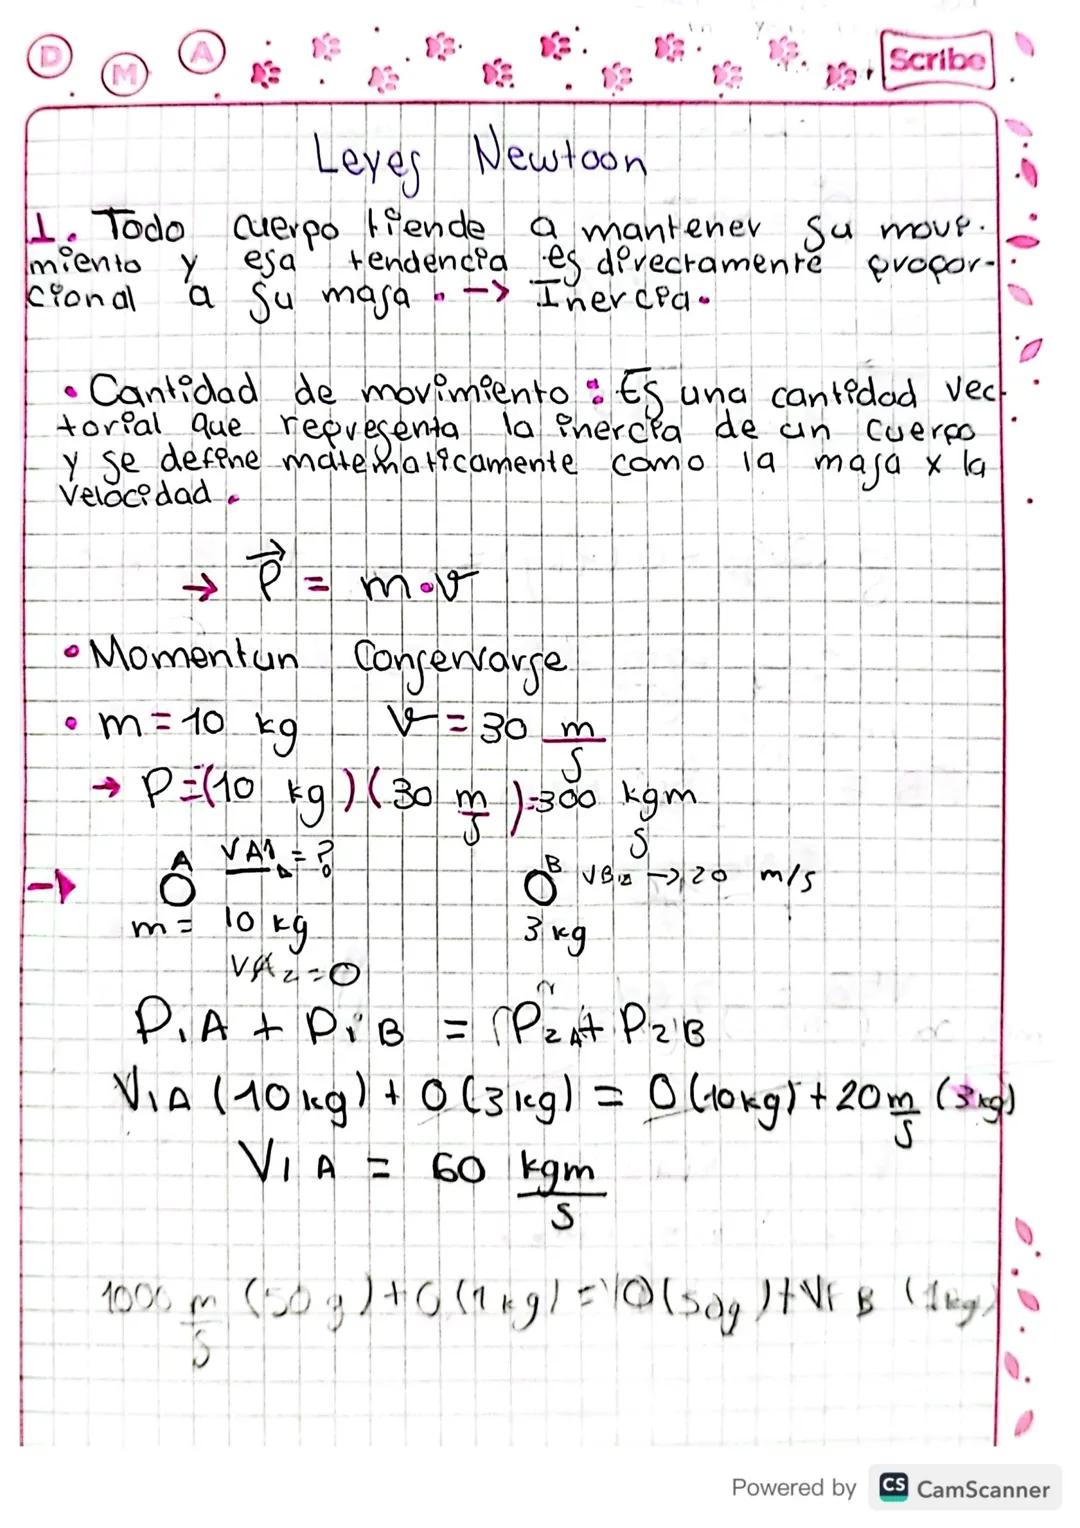 D M A Scribe
Leyes Newtoon
1. Todo cuerpo tiende a mantener su movi-
miento y esa tendencia es directamente propor-
cional a su masa. -> Inercia.
• Cantidad de movimiento: Es una cantidad vec-
torial que representa la inercia de un cuerpo
y se define matematicamente como la masa x la
velocidad.
→ P⃗ = m•v
• Momentun Conservarse
• m = 10 kg V = 30 m/s
→ P=(10 kg)(30 m/s)=300 kgm/s
→ A VA1 = ? B VB2 → 20 m/s
m = 10 kg 3 kg
VA2 = 0
P1A + P1B = P2A + P2B
V1A (10kg) + 0 (3kg) = 0 (10kg) + 20 m/s (3kg)
V1A = 60 kgm/s
1000 m/s (50g) + 0 (1kg) = 0 (50g) + VFB (1kg)
Powered by CS CamScanner